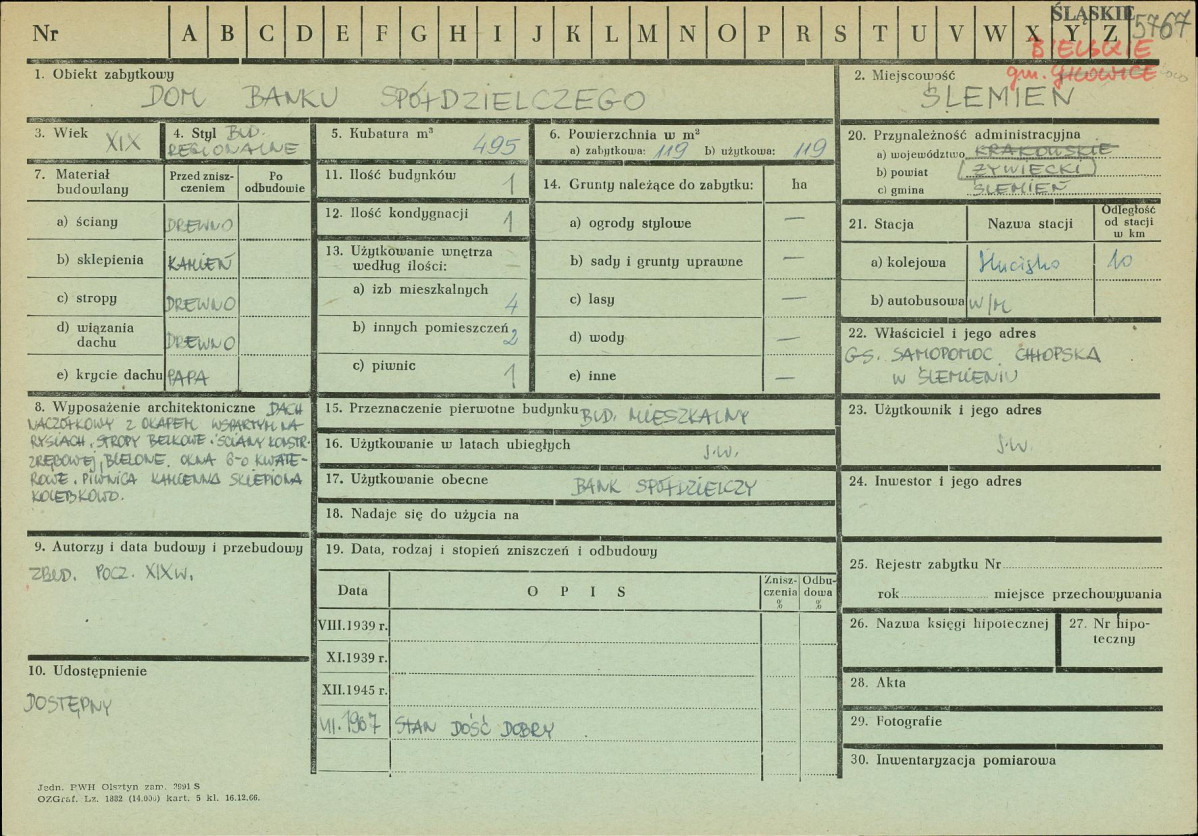 Nr A B C D E F G H I J K L M N O P R S T U V W X Y Z
ŚLĄSKIE 5767
BIELSKIE
gm. GILOWICE
1. Obiekt zabytkowy
DOM BANKU SPÓŁDZIELCZEGO
2. Miejscowość
ŚLEMIEŃ
3. Wiek XIX
4. Styl BUD. REGIONALNE
5. Kubatura m³
495
6. Powierzchnia w m²
a) zabytkowa: 119 b) użytkowa: 119
7. Materiał budowlany
Przed zniszczeniem
Po odbudowie
a) ściany DREWNO
b) sklepienia KAMIEŃ
c) stropy DREWNO
d) wiązania dachu DREWNO
e) krycie dachu PAPA
8. Wyposażenie architektoniczne DACH
NACZÓŁKOWY Z OKAPEM WSPARTYM NA
RYSIACH. STROPY BELKOWE. ŚCIANY KONSTR.
ZRĘBOWEJ, BIELONE. OKNA 6-O KWATE-
ROWE. PIWNICA KAMIENNA SKLEPIONA
KOLEBKOWO.
9. Autorzy i data budowy i przebudowy
ZBUD. POCZ. XIX W.
10. Udostępnienie
DOSTĘPNY
11. Ilość budynków
1
12. Ilość kondygnacji
1
13. Użytkowanie wnętrza
według ilości: —
a) izb mieszkalnych
4
b) innych pomieszczeń
2
c) piwnic
1
14. Grunty należące do zabytku: ha
a) ogrody stylowe —
b) sady i grunty uprawne —
c) lasy —
d) wody —
e) inne —
15. Przeznaczenie pierwotne budynku BUD. MIESZKALNY
16. Użytkowanie w latach ubiegłych
J.W.
17. Użytkowanie obecne
BANK SPÓŁDZIELCZY
18. Nadaje się do użycia na
19. Data, rodzaj i stopień zniszczeń i odbudowy
Data
O P I S
Zniszczenia %
Odbudowa %
VIII.1939 r.
XI.1939 r.
XII.1945 r.
VII.1967 STAN DOŚĆ DOBRY
20. Przynależność administracyjna
a) województwo KRAKOWSKIE
b) powiat ŻYWIECKI
c) gmina ŚLEMIEŃ
21. Stacja
Nazwa stacji
Odległość od stacji w km
a) kolejowa Hucisko 10
b) autobusowa W/M
22. Właściciel i jego adres
GS. SAMOPOMOC CHŁOPSKA
W ŚLEMIENIU
23. Użytkownik i jego adres
J.W.
24. Inwestor i jego adres
25. Rejestr zabytku Nr
rok miejsce przechowywania
26. Nazwa księgi hipotecznej
27. Nr hipo-
teczny
28. Akta
29. Fotografie
30. Inwentaryzacja pomiarowa
Jedn. PWH Olsztyn zam. 3991 S
OZGraf. Lz. 1882 (14.000) kart. 5 kl. 16.12.66.